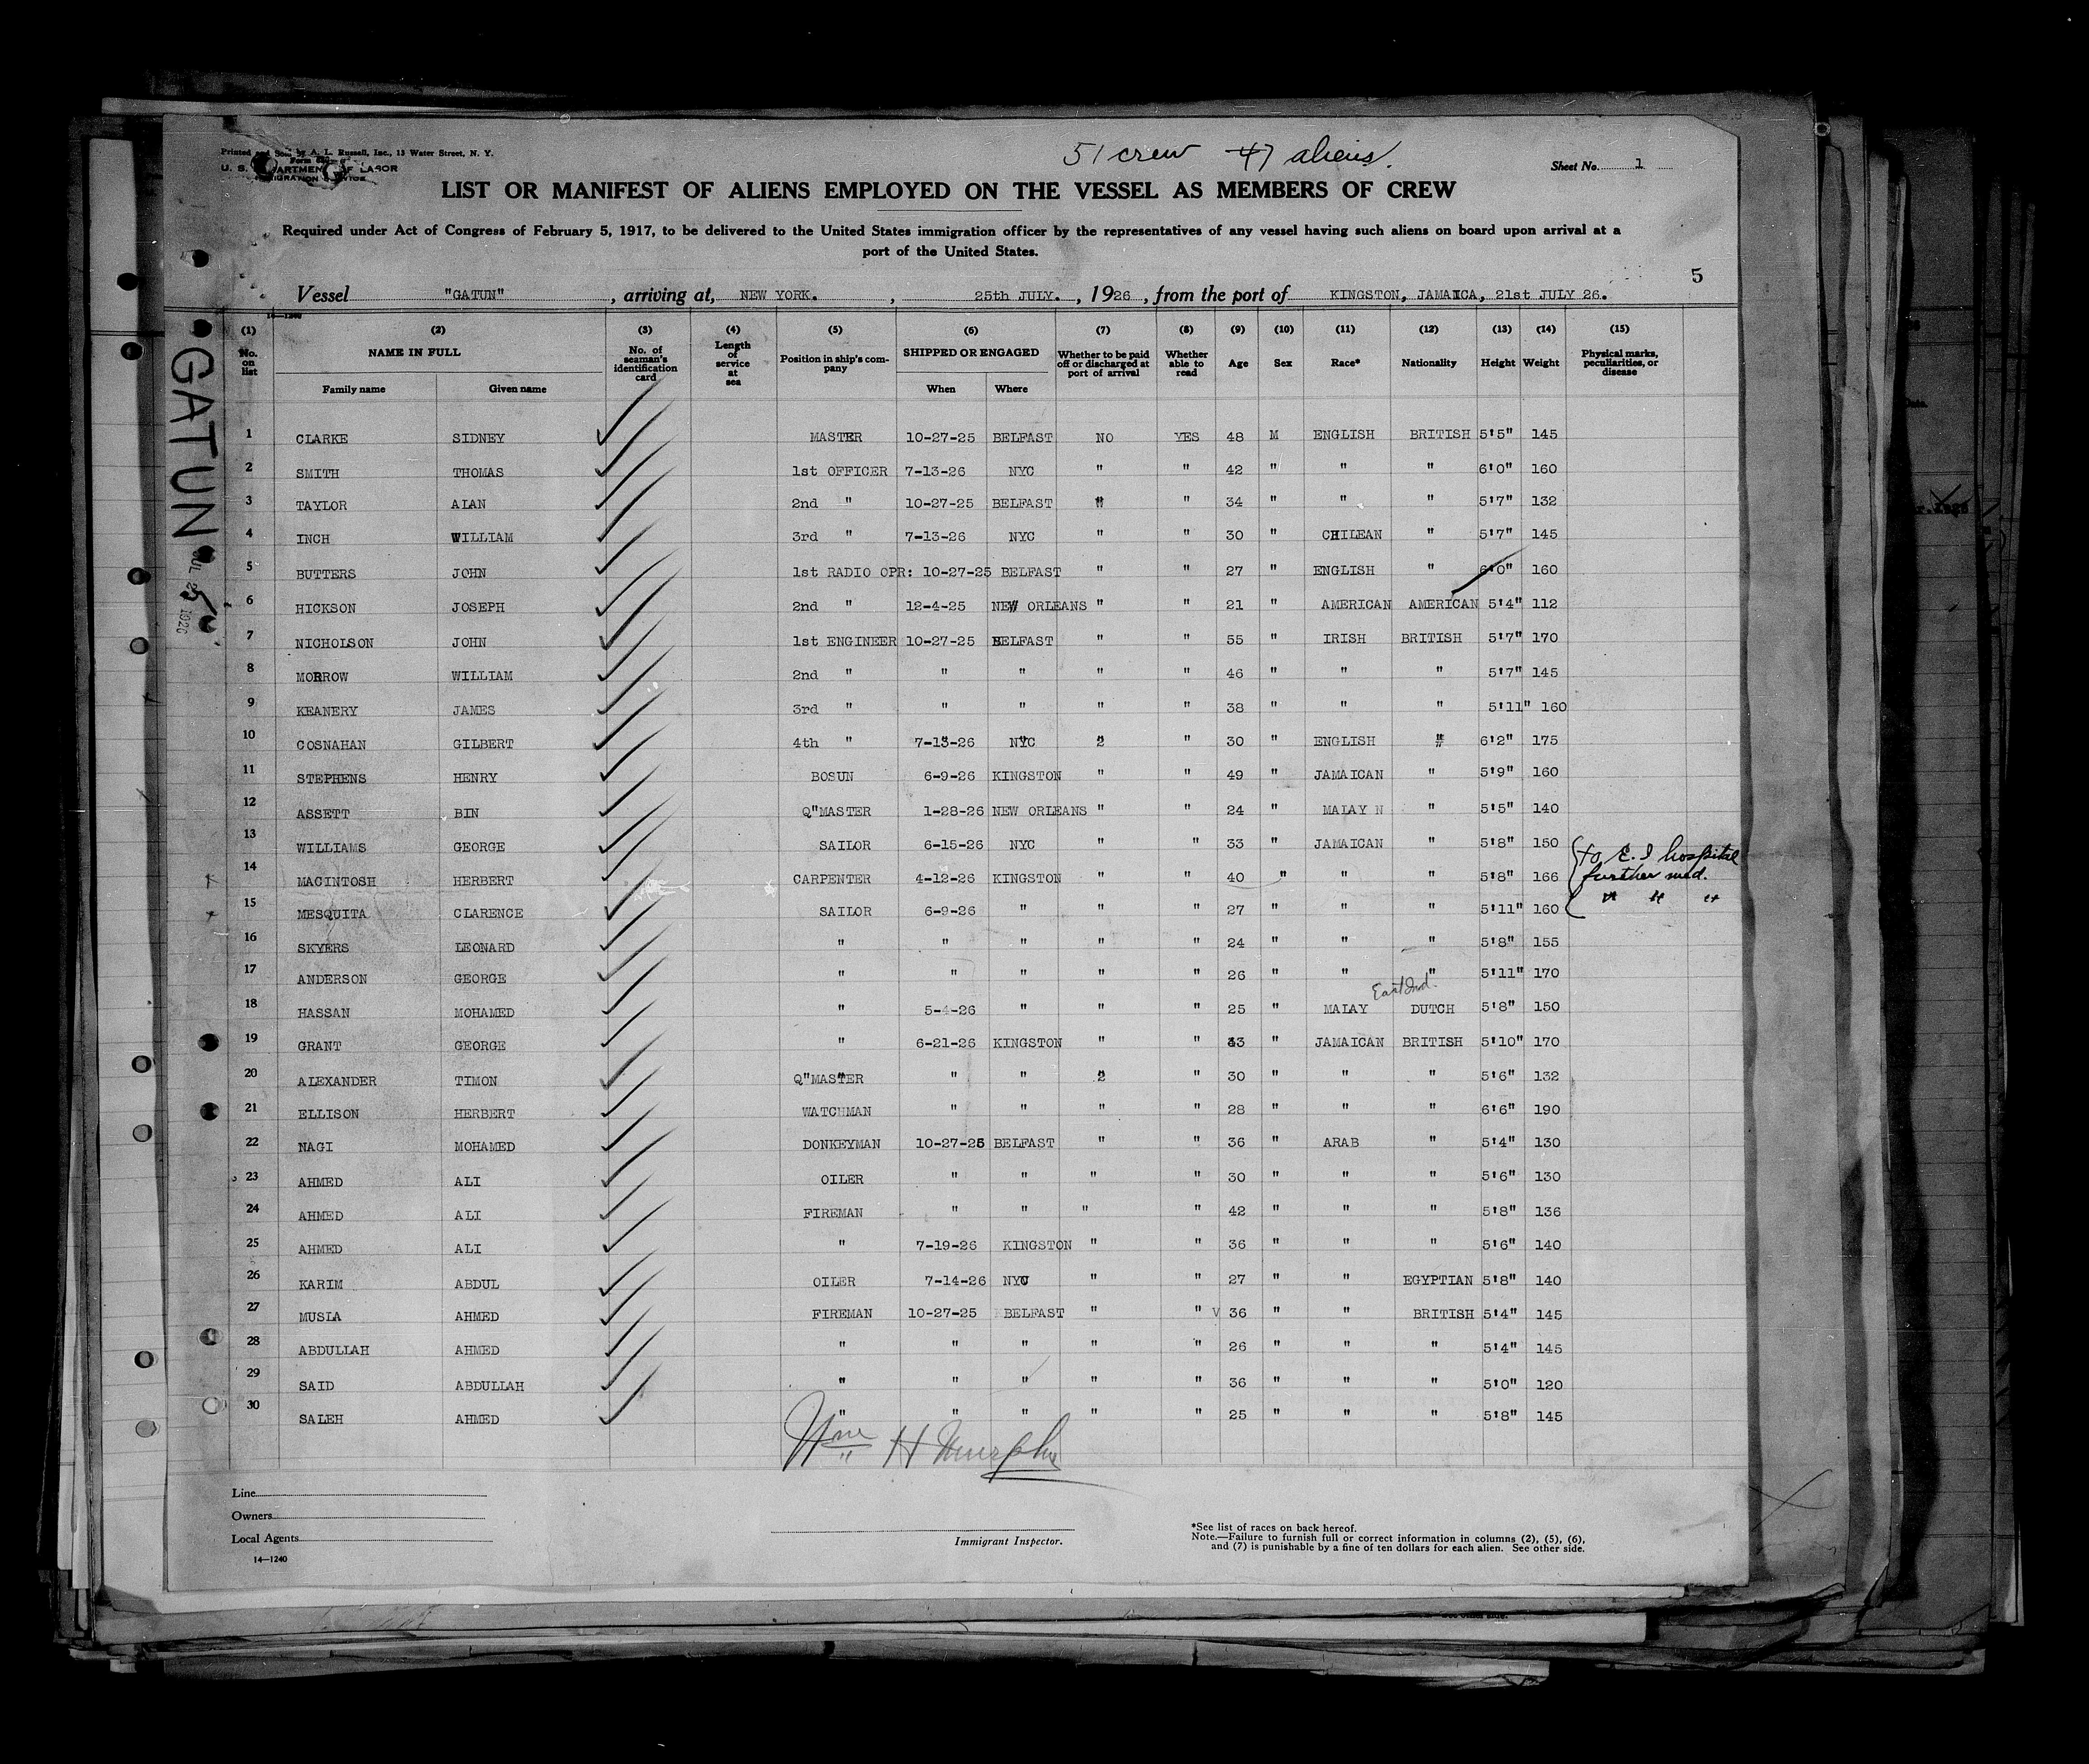 51 crew 47 aliens.
Printed and Sold by A. L. Russell, Inc., 13 Water Street, N. Y.
U. S. DEPARTMENT OF LABOR
Sheet No. 1
LIST OR MANIFEST OF ALIENS EMPLOYED ON THE VESSEL AS MEMBERS OF CREW
Required under Act of Congress of February 5, 1917, to be delivered to the United States immigration officer by the representatives of any vessel having such aliens on board upon arrival at a
port of the United States.
5
Vessel "GATUN", arriving at, NEW YORK., 25th JULY., 1926, from the port of KINGSTON, JAMAICA, 21st JULY 26.
GATUN
JUL 25 1926
(1) (2) (3) (4) (5) (6) (7) (8) (9) (10) (11) (12) (13) (14) (15)
No. on list NAME IN FULL Family name Given name No. of seaman's identification card Length of service at sea Position in ship's company SHIPPED OR ENGAGED When Where Whether to be paid off or discharged at port of arrival Whether able to read Age Sex Race* Nationality Height Weight Physical marks, peculiarities, or disease
1 CLARKE SIDNEY MASTER 10-27-25 BELFAST NO YES 48 M ENGLISH BRITISH 5'5" 145
2 SMITH THOMAS 1st OFFICER 7-13-26 NYC " " 42 " " " 6'0" 160
3 TAYLOR ALAN 2nd " 10-27-25 BELFAST " " 34 " " " 5'7" 132
4 INCH WILLIAM 3rd " 7-13-26 NYC " " 30 " CHILEAN " 5'7" 145
5 BUTTERS JOHN 1st RADIO OPR: 10-27-25 BELFAST " " 27 " ENGLISH " 6'0" 160
6 HICKSON JOSEPH 2nd " 12-4-25 NEW ORLEANS " " 21 " AMERICAN AMERICAN 5'4" 112
7 NICHOLSON JOHN 1st ENGINEER 10-27-25 BELFAST " " 55 " IRISH BRITISH 5'7" 170
8 MORROW WILLIAM 2nd " " " " " 46 " " " 5'7" 145
9 KEANERY JAMES 3rd " " " " " 38 " " " 5'11" 160
10 COSNAHAN GILBERT 4th " 7-13-26 NYC " " 30 " ENGLISH " 6'2" 175
11 STEPHENS HENRY BOSUN 6-9-26 KINGSTON " " 49 " JAMAICAN " 5'9" 160
12 ASSETT BIN Q"MASTER 1-28-26 NEW ORLEANS " " 24 " MALAY N " 5'5" 140
13 WILLIAMS GEORGE SAILOR 6-15-26 NYC " " 33 " JAMAICAN " 5'8" 150 to E.I hospital
14 MACINTOSH HERBERT CARPENTER 4-12-26 KINGSTON " " 40 " " " 5'8" 166 further med.
15 MESQUITA CLARENCE SAILOR 6-9-26 " " " 27 " " " 5'11" 160 " " "
16 SKYERS LEONARD " " " " " 24 " " " 5'8" 155
17 ANDERSON GEORGE " " " " " 26 " " " 5'11" 170
East Ind.
18 HASSAN MOHAMED " 5-4-26 " " " 25 " MALAY DUTCH 5'8" 150
19 GRANT GEORGE " 6-21-26 KINGSTON " " 43 " JAMAICAN BRITISH 5'10" 170
20 ALEXANDER TIMON Q"MASTER " " " " 30 " " " 5'6" 132
21 ELLISON HERBERT WATCHMAN " " " " 28 " " " 6'6" 190
22 NAGI MOHAMED DONKEYMAN 10-27-25 BELFAST " " 36 " ARAB " 5'4" 130
23 AHMED ALI OILER " " " " 30 " " " 5'6" 130
24 AHMED ALI FIREMAN " " " " 42 " " " 5'8" 136
25 AHMED ALI " 7-19-26 KINGSTON " " 36 " " " 5'6" 140
26 KARIM ABDUL OILER 7-14-26 NYC " " 27 " " EGYPTIAN 5'8" 140
27 MUSLA AHMED FIREMAN 10-27-25 BELFAST " " 36 " " BRITISH 5'4" 145
28 ABDULLAH AHMED " " " " " 26 " " " 5'4" 145
29 SAID ABDULLAH " " " " " 36 " " " 5'0" 120
30 SALEH AHMED " " " " " 25 " " " 5'8" 145
Wm H Murphy
Line
Owners
Local Agents
14—1240
Immigrant Inspector.
*See list of races on back hereof.
Note.—Failure to furnish full or correct information in columns (2), (5), (6),
and (7) is punishable by a fine of ten dollars for each alien. See other side.